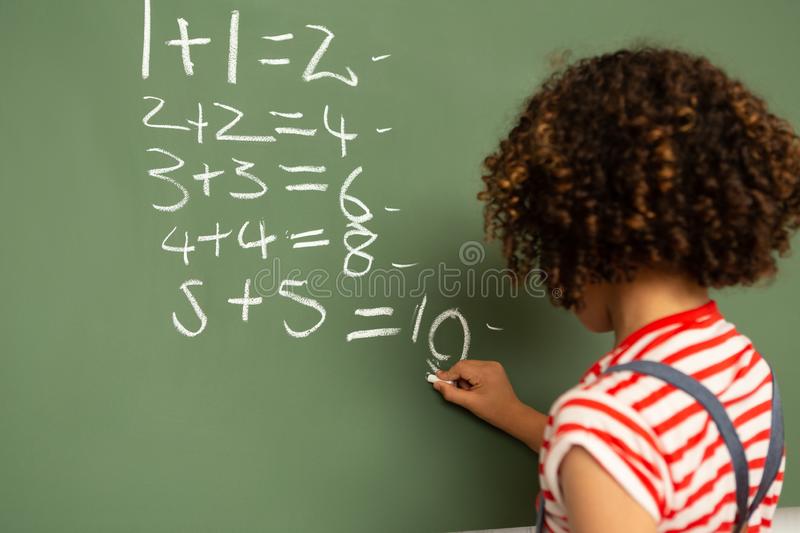 1+1=2-
2+2=4-
3+3=6-
4+4=8-
5+5=10-
dreamstime.